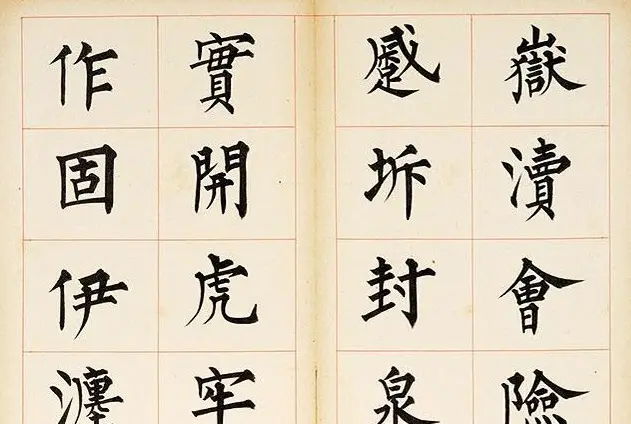 嶽瀆會險
蹙坼封泉
實開虎牢
作固伊瀍